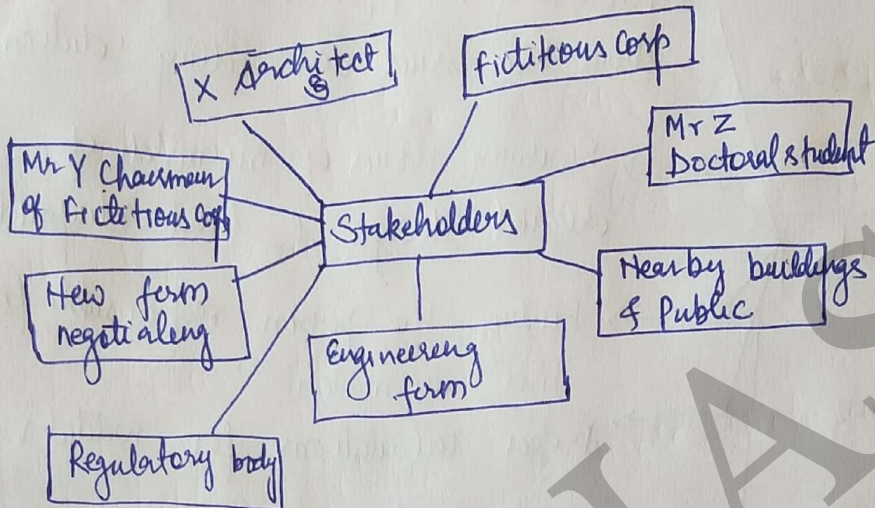 X Architect
fictiteous Corp
Mr Z
Doctoral student
Mr Y Chairman
of Fictitious Corp
Stakeholders
Near by buildings
& Public
New firm
negotiating
Engineering
firm
Regulatory body
IAS